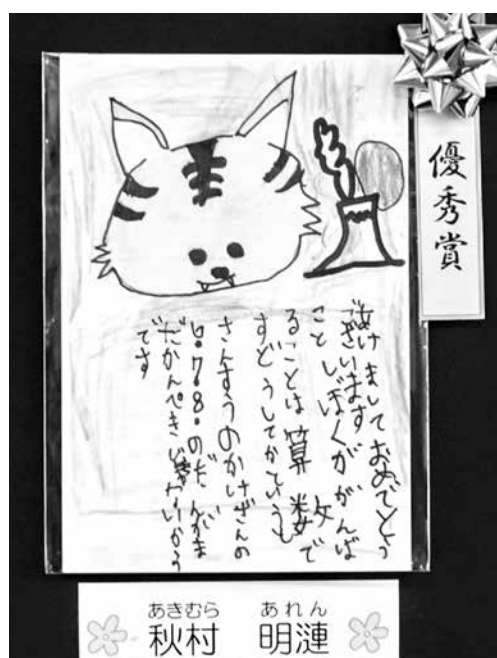 優秀賞
あけましておめでとう
ございます
ことしぼくががんば
ることは算数で
すどうしてかというと
さんすうのかけざんの
6.7.8.のだんがま
だかんぺきじゃないから
です
あきむら あれん
秋村 明漣